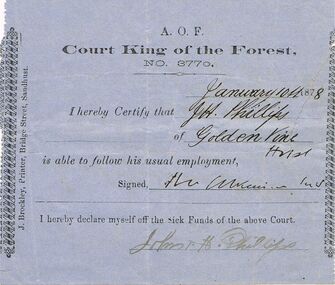 A. O. F.
Court King of the Forest,
NO. 3770.
January 10th 1878
I hereby Certify that J H. Phillips
of Golden Vine
is able to follow his usual employment,
Signed,
I hereby declare myself off the Sick Funds of the above Court.
John H. Phillips
J. Brockley, Printer, Bridge Street, Sandhurst.